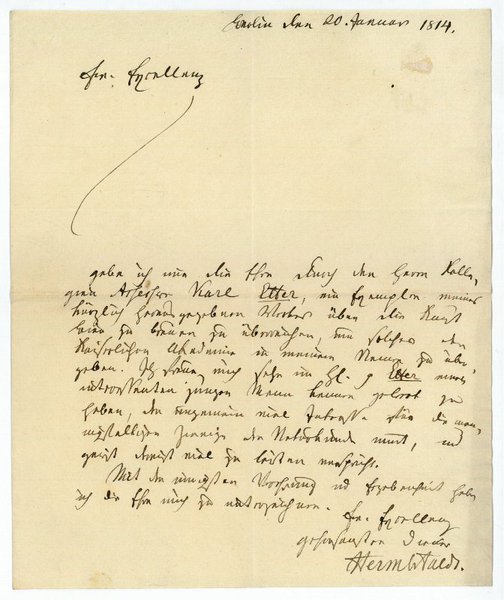 Berlin den 20. Januar 1814.
Ew. Excellenz
gebe ich mir die Ehre durch den Herrn Colle-
gien Assessor Karl Etter, ein Exemplar meines
kürzlich herausgegebenen Werkes über die Kunst
Bier zu brauen zu überreichen, um solches der
Kaiserlichen Akademie in meinem Namen zu über-
geben. Ich freue mich sehr im H. Etter einen
interessanten jungen Mann kennen gelernt zu
haben, der ungemein viel Interesse für die man-
nigfaltigen Zweige der Naturkunde und
einst viel zu leisten verspricht.
Mit der innigsten Verehrung und Ergebenheit habe
ich die Ehre mich zu unterzeichnen.
Ew. Excellenz
gehorsamster Diener
Hermbstaedt.